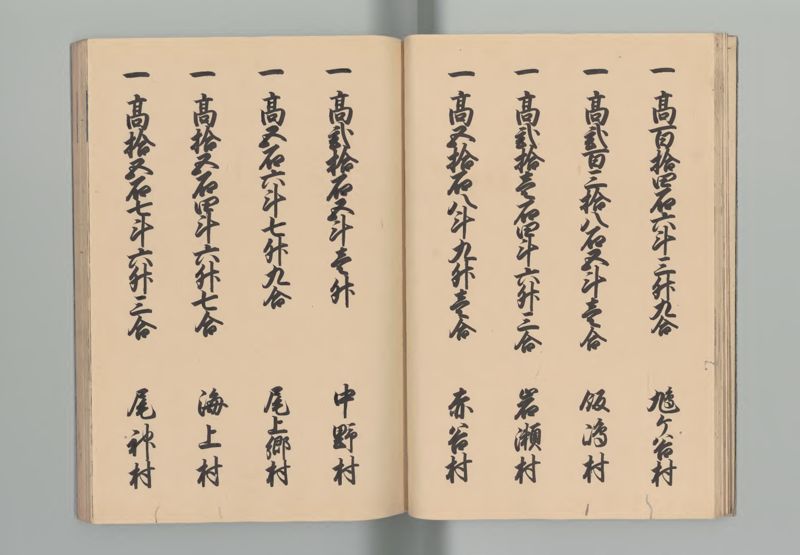 一 髙百拾四石六斗三舛九合 鳩ケ谷村
一 髙弐百三拾八石五斗壱合 飯嶋村
一 髙弐拾壱石四斗六舛三合 岩瀬村
一 髙五拾石八斗九舛壱合 赤谷村
一 髙弐拾石五斗壱舛 中野村
一 髙五石六斗七舛九合 尾上郷村
一 髙拾五石四斗六舛七合 海上村
一 髙拾五石七斗六舛三合 尾神村